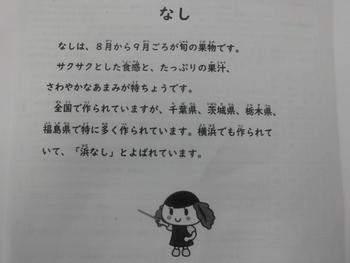 なし
なしは、８月から９月ごろが旬の果物です。
サクサクとした食感と、たっぷりの果汁、
さわやかなあまみが特ちょうです。
全国で作られていますが、千葉県、茨城県、栃木県、
福島県で特に多く作られています。横浜でも作られて
いて、「浜なし」とよばれています。